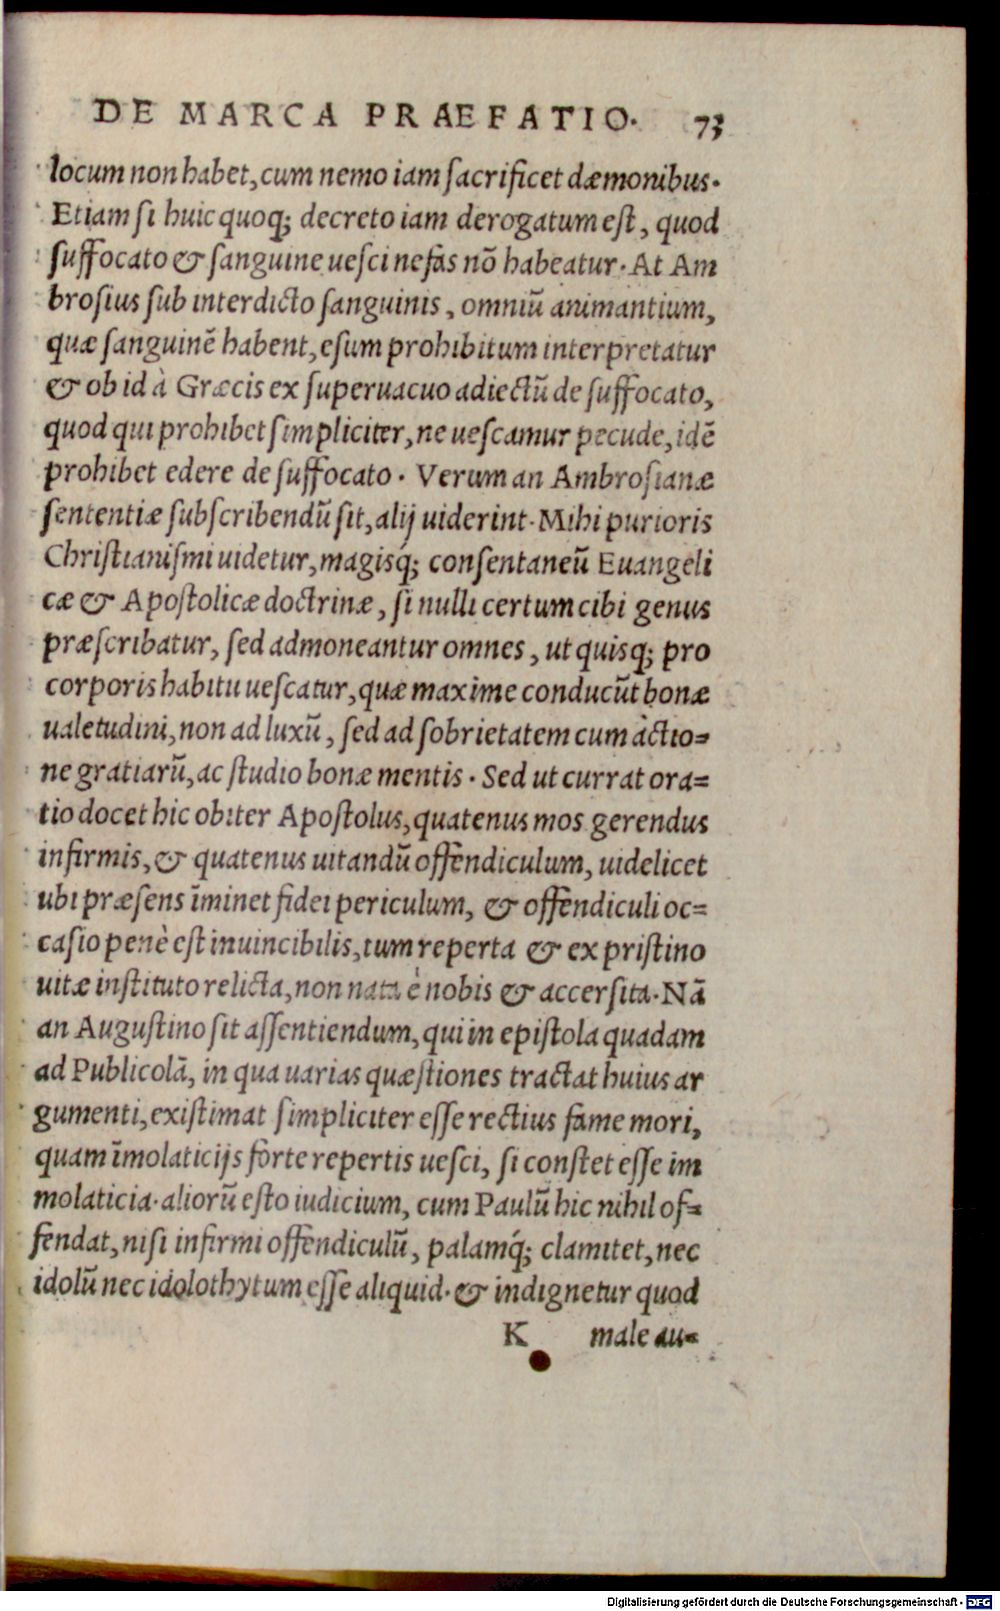 DE MARCA PRAEFATIO. 73
locum non habet, cum nemo iam ſacrificet dæmonibus.
Etiam ſi huic quoq; decreto iam derogatum eſt, quod
ſuffocato & ſanguine ueſci nefas nō habeatur. At Am
broſius ſub interdicto ſanguinis, omniū animantium,
quæ ſanguinē habent, eſum prohibitum interpretatur
& ob id à Græcis ex ſuperuacuo adiectū de ſuffocato,
quod qui prohibet ſimpliciter, ne ueſcamur pecude, idē
prohibet edere de ſuffocato. Verum an Ambroſianæ
ſententiæ ſubſcribendū ſit, alij uiderint. Mihi purioris
Chriſtianiſmi uidetur, magisq́; conſentaneū Euangeli
cæ & Apoſtolicæ doctrinæ, ſi nulli certum cibi genus
præſcribatur, ſed admoneantur omnes, ut quisq; pro
corporis habitu ueſcatur, quæ maxime conducūt bonæ
ualetudini, non ad luxū, ſed ad ſobrietatem cum àctio=
ne gratiarū, ac ſtudio bonæ mentis. Sed ut currat ora=
tio docet hic obiter Apoſtolus, quatenus mos gerendus
infirmis, & quatenus uitandū offendiculum, uidelicet
ubi præſens īminet fidei periculum, & offendiculi oc=
caſio penè eſt inuincibilis, tum reperta & ex priſtino
uitæ inſtituto relicta, non nata è nobis & accerſita. Nā
an Auguſtino ſit aſſentiendum, qui in epiſtola quadam
ad Publicolā, in qua uarias quæſtiones tractat huius ar
gumenti, exiſtimat ſimpliciter eſſe rectius fame mori,
quam īmolaticijs forte repertis ueſci, ſi conſtet eſſe im
molaticia. aliorū eſto iudicium, cum Paulū hic nihil of=
fendat, niſi infirmi offendiculū, palamq́; clamitet, nec
idolū nec idolothytum eſſe aliquid. & indignetur quod
K male au=
Digitalisierung gefördert durch die Deutsche Forschungsgemeinschaft - DFG